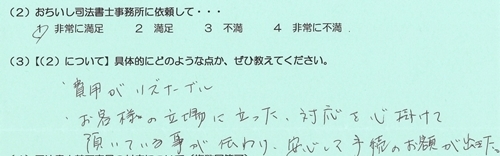 （2）おちいし司法書士事務所に依頼して・・・
1 非常に満足　2 満足　3 不満　4 非常に不満
（3）【（2）について】具体的にどのような点か、ぜひ教えてください。
・費用がリーズナブル
・お客様の立場に立った、対応を心掛けて
頂いている事が伝わり、安心して手続のお願が出来た。